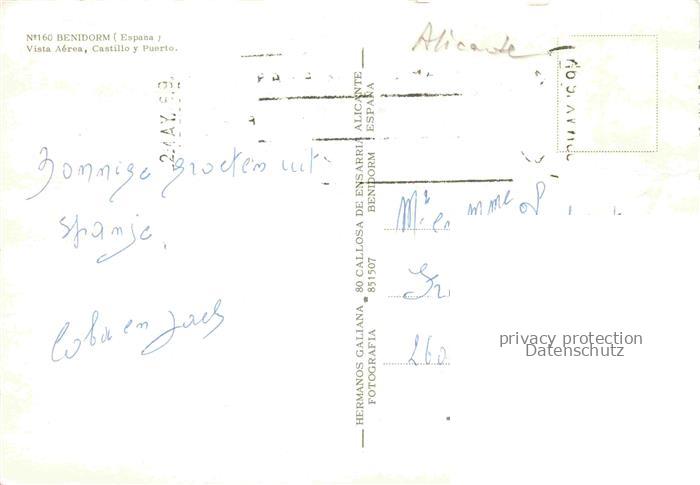 Nº160 BENIDORM ( España )
Vista Aérea, Castillo y Puerto.
Alicante
Zonnige groeten uit
Spanje.
en
Mr en mme
260
HERMANOS GALIANA. 80 CALLOSA DE ENSARRIA ALICANTE
FOTOGRAFIA 851507 BENIDORM ESPAÑA
privacy protection
Datenschutz